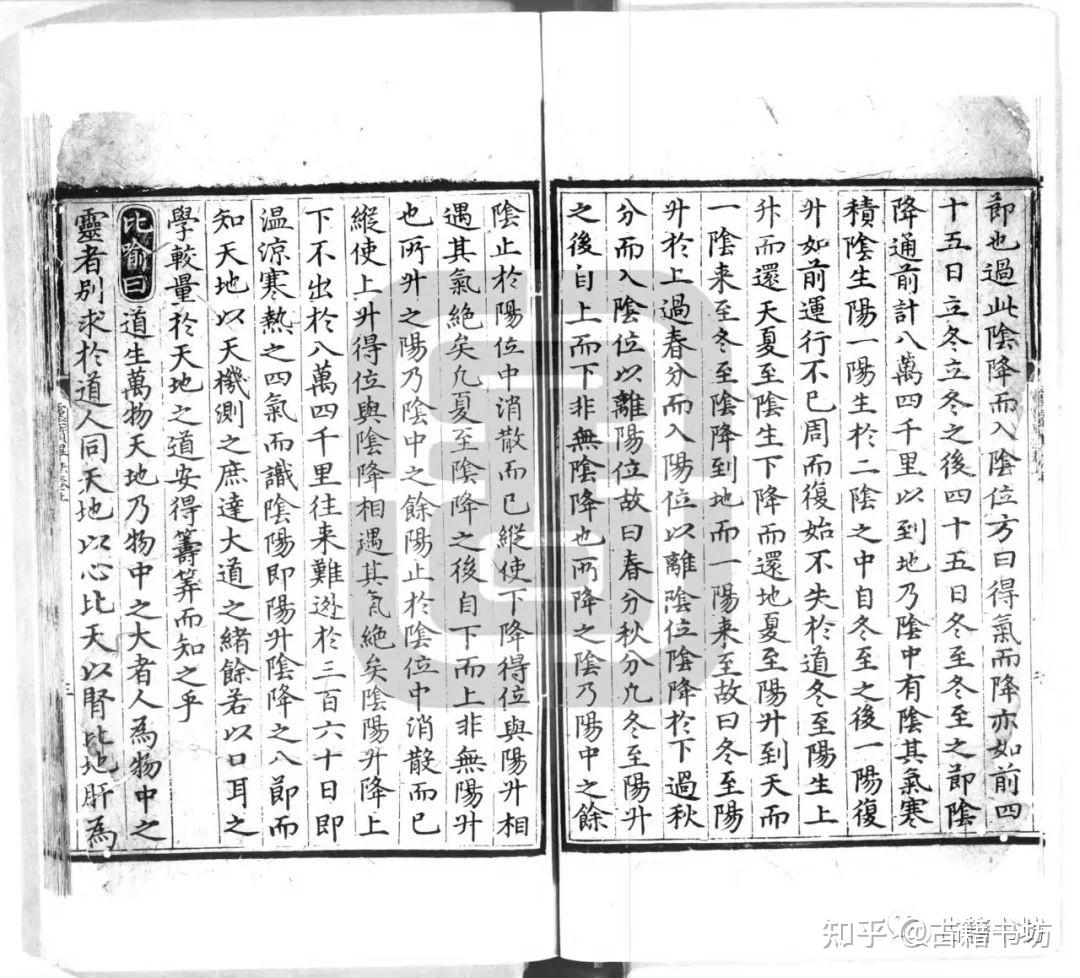 節也過此陰降而入陰位方曰得氣而降亦如前四
十五日立冬立冬之後四十五日冬至冬至之節陰
降通前計八萬四千里以到地乃陰中有陰其氣寒
積陰生陽一陽生於二陰之中自冬至之後一陽復
升如前運行不已周而復始不失於道冬至陽生上
升而還天夏至陰生下降而還地夏至陽升到天而
一陰来至冬至陰降到地而一陽来至故曰冬至陽
升於上過春分而入陽位以離陰位陰降於下過秋
分而入陰位以離陽位故曰春分秋分九冬至陽升
之後自上而下非無陰降也所降之陰乃陽中之餘
陰止於陽位中消散而已縱使下降得位與陽升相
遇其氣絶矣九夏至陰降之後自下而上非無陽升
也所升之陽乃陰中之餘陽止於陰位中消散而已
縱使上升得位與陰降相遇其氣絶矣陰陽升降上
下不出於八萬四千里往来難逃於三百六十日即
温涼寒熱之四氣而識陰陽即陽升陰降之八節而
知天地以天機測之庶達大道之緒餘若以口耳之
學較量於天地之道安得籌筭而知之乎
比喻曰道生萬物天地乃物中之大者人為物中之
靈者別求於道人同天地以心比天以腎比地肝為
知乎 @古籍书坊